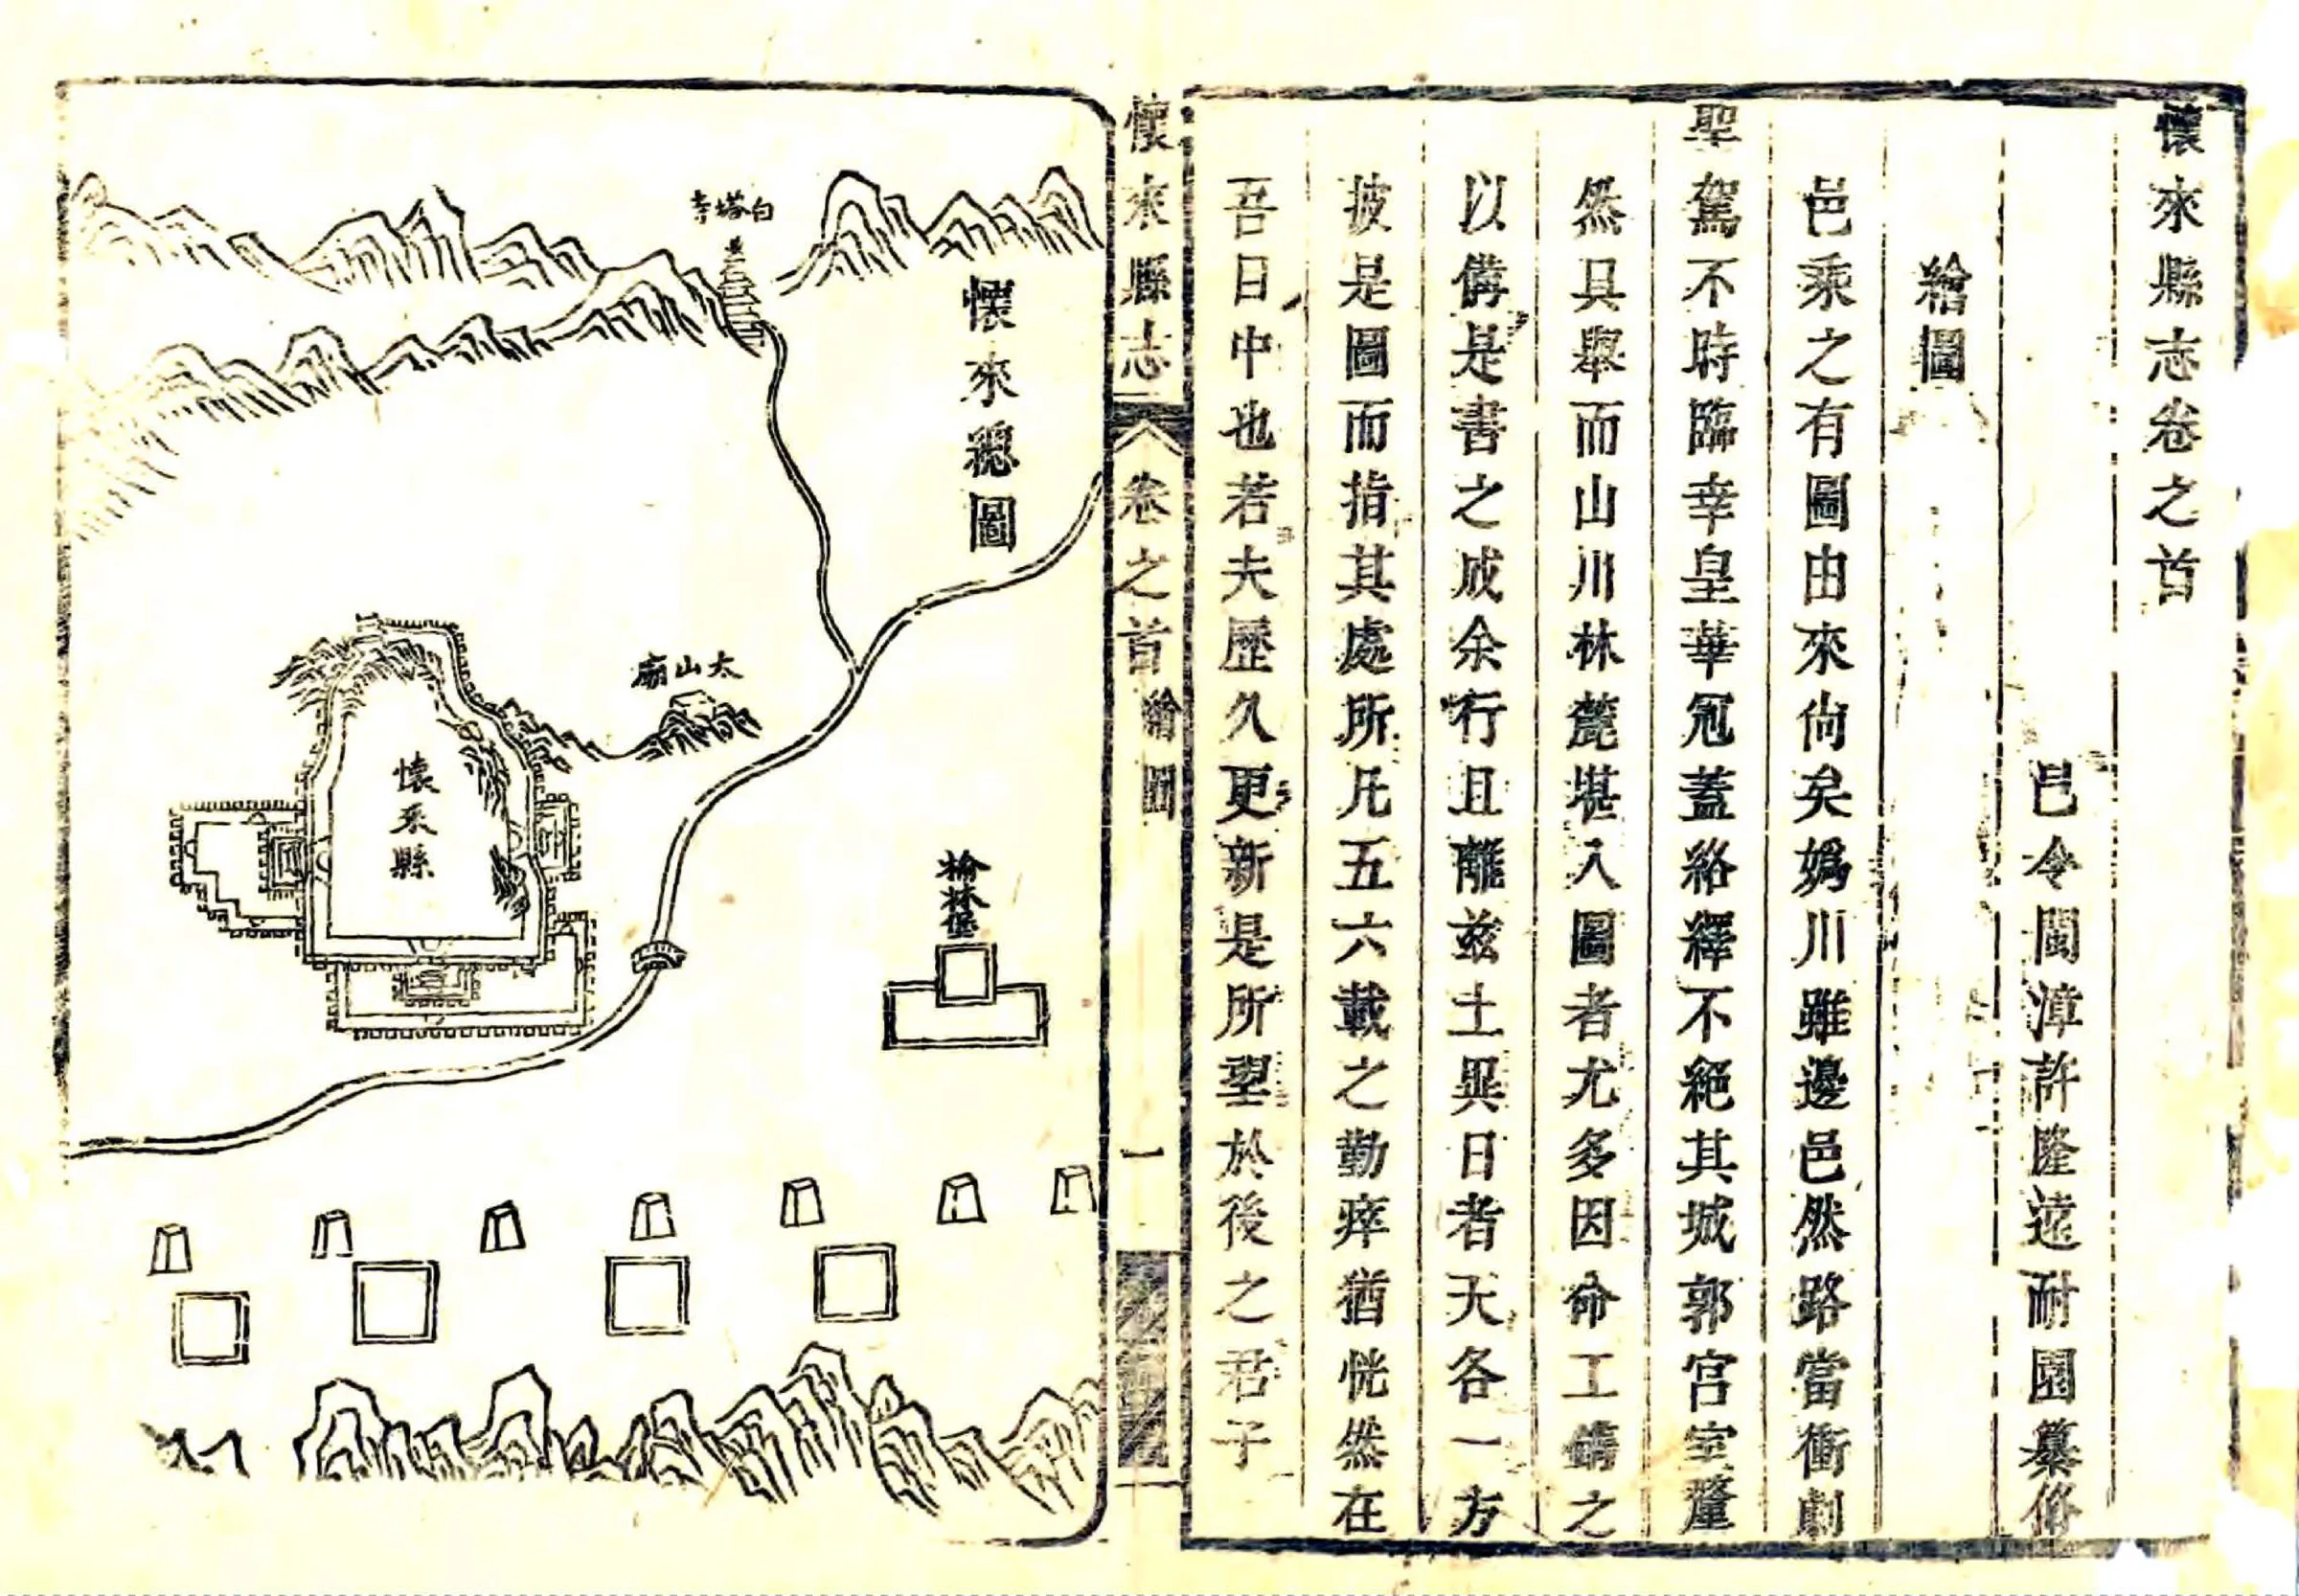 懷來縣志卷之首
邑令閩漳許隆遠耐園纂修
繪圖
邑乘之有圖由來尚矣媯川雖邊邑然路當衝劇
聖駕不時臨幸皇華冠蓋絡繹不絕其城郭宮室釐
然具舉而山川林麓堪入圖者尤多因命工鐫之
以備是書之成余行且離兹土異日者天各一方
披是圖而指其處所凡五六載之勤瘁猶恍然在
吾目中也若夫歷久更新是所望於後之君子
懷來縣志
卷之首
繪圖
一
懷來總圖
白塔寺
太山廟
懷來縣
榆林堡